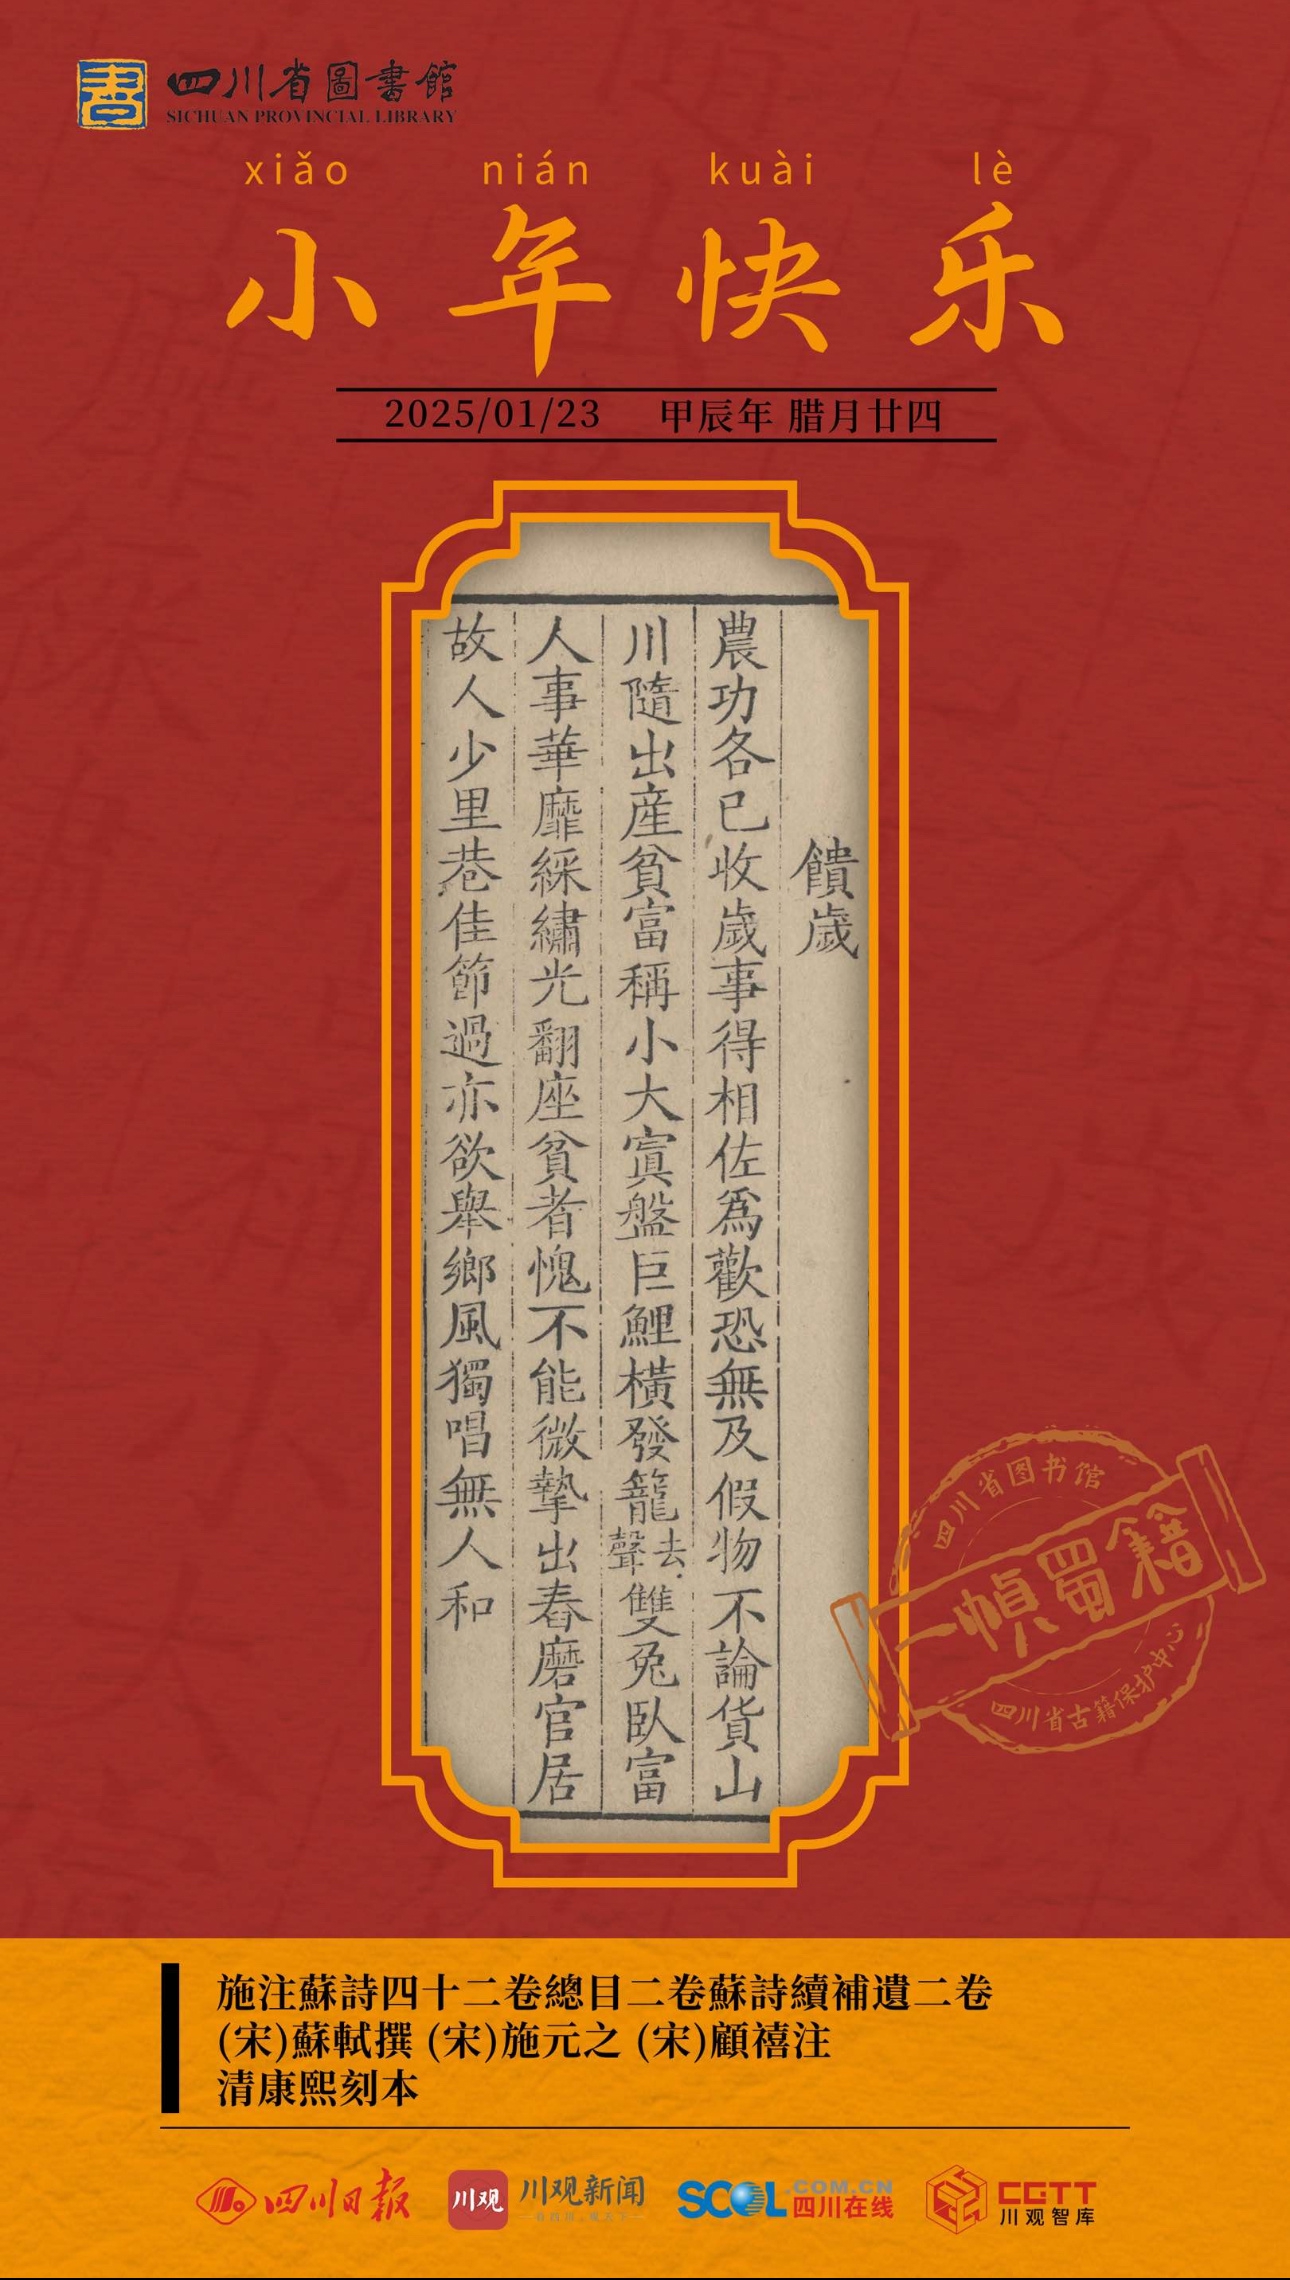 四川省圖書館
SICHUAN PROVINCIAL LIBRARY
xiǎo nián kuài lè
小年快乐
2025/01/23 甲辰年 腊月廿四
饋歲
農功各已收歲事得相佐爲歡恐無及假物不論貨山
川隨出産貧富稱小大寘盤巨鯉橫發籠去聲雙兔臥富
人事華靡綵繡光翻座貧者愧不能微摯出舂磨官居
故人少里巷佳節過亦欲舉鄉風獨唱無人和
四川省图书馆
一幀蜀籍
四川省古籍保护中心
施注蘇詩四十二卷總目二卷蘇詩續補遺二卷
(宋)蘇軾撰 (宋)施元之 (宋)顧禧注
清康熙刻本
四川日報
川观 川观新闻
SCOL.COM.CN
四川在线
CGTT
川观智库